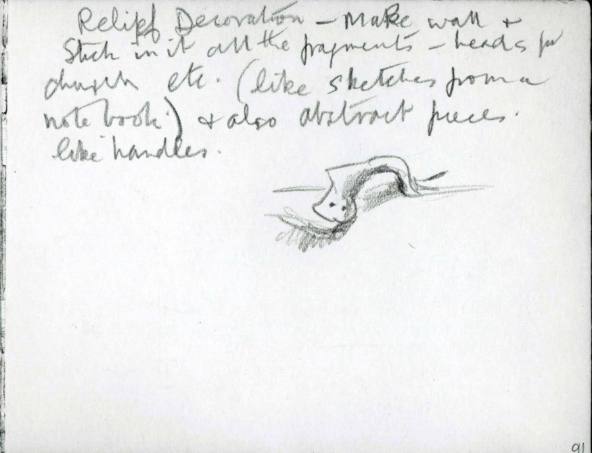 Relief Decoration - Make wall &
Stick in it all the fragments - heads for
church etc. (like sketches from a
note book.) & also abstract pieces.
like handles.
91